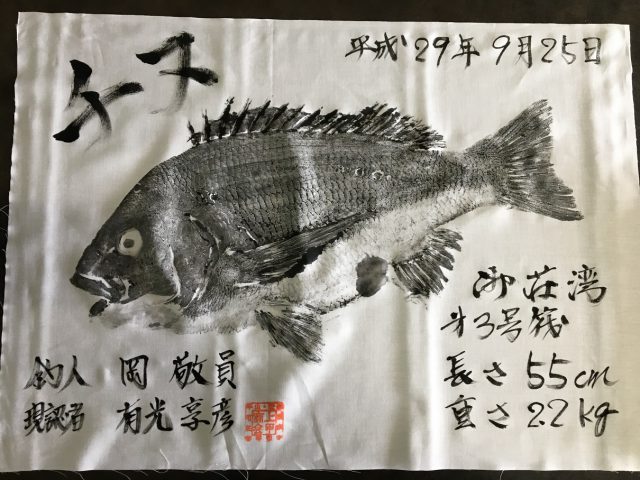 平成29年9月25日
御荘湾
才3号筏
長さ 55cm
重さ 2.2kg
釣人 岡 敬員
現認者 有光 享彦